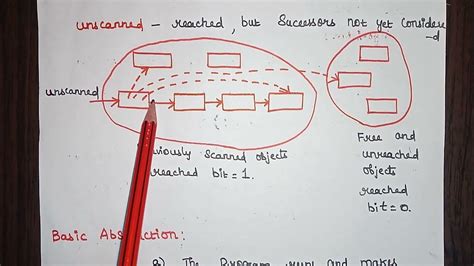 unscanned – reached, but Successors not yet Considere
-d
unscanned
viously Scanned objects
reached bit = 1.
Free and
unreached
objects
reached
bit = 0.
Basic Abs ction:
a) The Program runs and makes